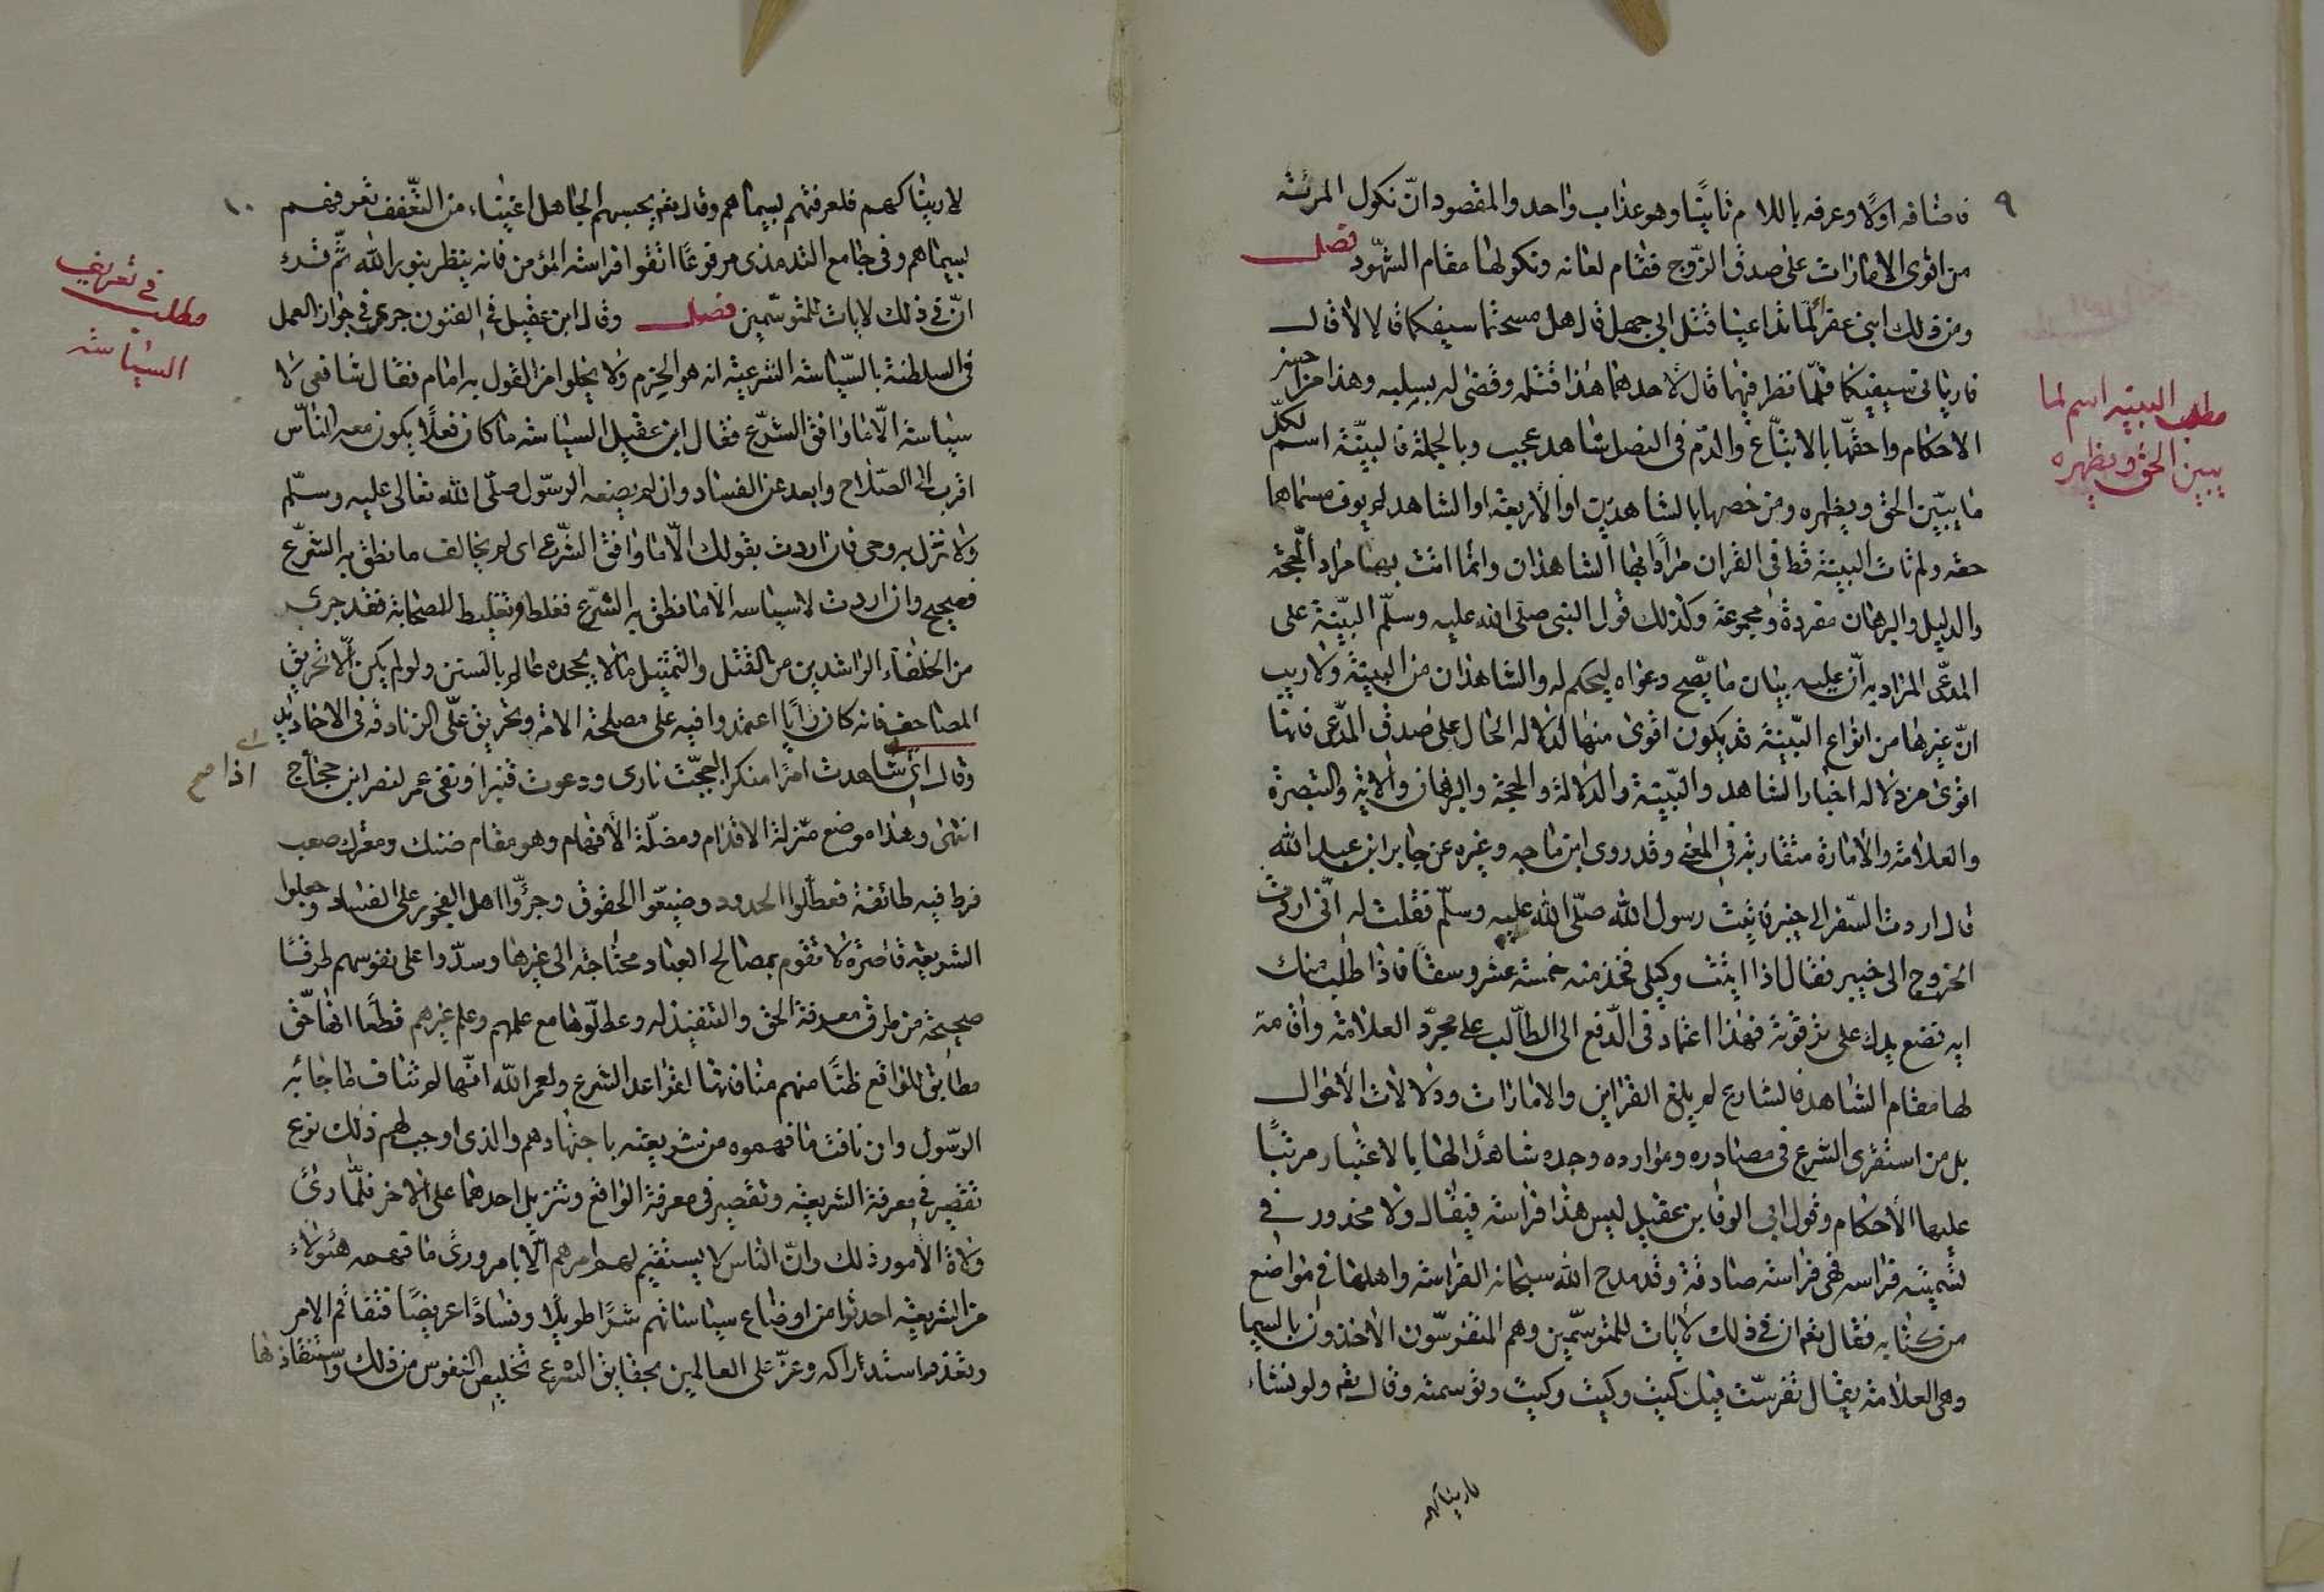 ٩
فاضافه اولًا وعرفه باللام ثانيًا وهو عذاب واحد والمقصود انّ نكول المرئة
من اقوى الامارات على صدق الزّوج فقام لعانه ونكولها مقام الشّهود فصل
ومن ذلك ابنى عفرا لمّا تداعيا قتل ابى جهل قال هل مسحتما سيفكما قالا لا قال
فاريانى سيفيكما فلمّا نظر فيهما قال لاحدهما هذا قتله وقضى له بسلبه وهذا من احسن
الاحكام واحقّها بالاتباع والدّم فى النصل شاهد عجيب وبالجملة فالبيّنة اسم لكلّ
ما يبيّن الحق ويظهره ومن خصها بالشاهدين او الاربعة او الشاهد لم يوف مسماها
حقه ولم تات البينة قط فى القران مرادًا بها الشاهدان وانما اتت بها مراد الحجة
والدليل والبرهان مفردة ومجموعة وكذلك قول النبى صلى الله عليه وسلّم البيّنة على
المدعى المراد به انّ عليه بيان ما يصّح دعواه ليحكم له والشاهدان من البينة ولا ريب
انّ غيرها من انواع البّينة قد يكون اقوى منها لدلاله الحال على صدق المدّعى فانها
اقوى من دلاله اخبار الشاهد والبّينة والدلالة والحجة والبرهان والاية والتبصرة
والعلامة والامارة متقاربة فى المعنى وقد روى ابن ماجه وغيره عن جابر ابن عبد الله
قال اردت السّفر الى خيبر فاتيت رسول الله صلّى الله عليه وسلّم فقلت له انّى اردت
الخروج الى خيبر فقال اذا اتيت وكيلى فخذ منه خمسة عشر وسقًا فاذا طلب منك
ايه فضع يدك على ترقوته فهذا اعتماد فى الدّفع الى الطالب على مجرّد العلامة واقامة
لها مقام الشاهد فالشارع لم يلغ القراين والامارات ودلالات الاحوال
بل من استقرى الشرع فى مصادره وموارده وجده شاهدًا لها بالاعتبار مرتبًا
عليها الاحكام وقول ابى الوفا بن عقيل ليس هذا فراسة فيقال ولا محذور فى
تسميته فراسه فهى فراسة صادقة وقد مدح الله سبحانه الفراسة واهلها فى مواضع
من كتابه فقال تعم ان فى ذلك لايات للمتوسّمين وهم المتفرسّون الاخذون بالسيما
وهى العلامة يقال تفرسّت فيك كيت وكيت وكيت وتوسمته وقال تعم ولو نشاء
لاريناكهم
مطلب البينه اسم لما
يبين الحق ويظهره
١٠
لاريناكهم فلعرفتهم بسيماهم وقال تعم يحسبهم الجاهل اغنياء من التّعفف تعرفهم
بسيماهم وفى جامع الترمذى مرفوعًا اتقوا فراسة المؤمن فانه ينظر بنور الله ثمّ قرء
انّ فى ذلك لايات للمتوسّمين فصل وقال ابن عقيل فى الفنون جرى فى جواز العمل
فى السلطنة بالسّياسة الشرعية انه هو الحزم ولا يخلوا من القول به امام فقال شافعى لا
سياسة الّا ما وافق الشرّع فقال ابن عقيل السياسة ما كان فعلًا يكون معه النّاس
اقرب الى الصّلاح وابعد عن الفساد وان لم يضعه الرسّول صلّى الله تعالى عليه وسلّم
ولا نزل به وحى فان اردت بقولك الّا ما وافق الشرّع اى لم يخالف ما نطق به الشرّع
فصحيح وان اردت لا سياسه الا ما نطق به الشرّع فغلط وتغليط للصحابة فقد جرى
من الخلفاء الراشدين من القتل والتمثيل ما لا يجحده عالم بالسنن ولو لم يكن الّا تحريق
المصاحف فانه كان رايًا اعتمدوا فيه على مصلحة الامة وتحريق علّى الزنادقة فى الاخاديد
وقال انى شاهدت امرًا منكرا اججّت نارى ودعوت قنبرا ونفى عمر لنصر ابن حجّاج
انتهى وهذا موضع مّزلة الاقدام ومضلّة الافهام وهو مقام ضنك ومعترك صعب
فرط فيه طائفة فعطّلوا الحدود وضيّعوا الحقوق وجرّوا اهل الفجور على الفساد وجعلوا
الشريعة قاصرة لا تقوم بمصالح العباد محتاجة الى غيرها وسدّوا على نفوسهم طرقًا
صحيحة من طرق معرفة الحق والتنفيذ له وعطلّوها مع علمهم وعلم غيرهم قطعًا انها حّق
مطابق للواقع ظنًا منهم منافاتها لقواعد الشرع ولعمر الله انّها لم تناف ما جائبه
الرسّول وان نافت ما فهموه من شريعته باجتهادهم والذى اوجب لهم ذلك نوع
تقصير فى معرفة الشريعة وتقصير فى معرفة الواقع وتنزيل احدهما على الاخر فلّما رئ
ولاة الامور ذلك وانّ الناس لا يستقيم لهم امرهم الّا بامر ورئ ما فهمه هئولاء
من الشريعة احدثوا من اوضاع سياساتهم شرًا طويلًا وفسادًا عريضًا فتفاقم الامر
وتعذر استدراكه وعزّ على العالمين بحقايق الشرع تخليص النفوس من ذلك واستنقاذها
مطلب فى تعريف
السياسة
اذا صح